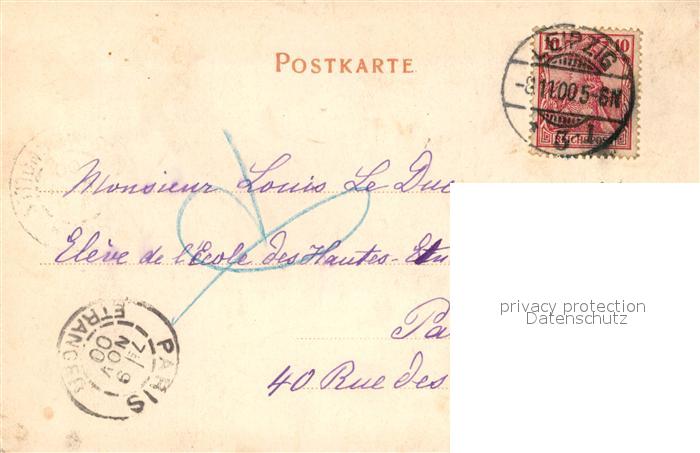 POSTKARTE
10 10
LEIPZIG
-8.11.00 5-6N
1
REICHSPOST
Monsieur Louis Le Duc
Elève de l'École des Hautes-Etu
privacy protection
Datenschutz
Pa
40 Rue des
PARIS
ETRANGER
NOV 00